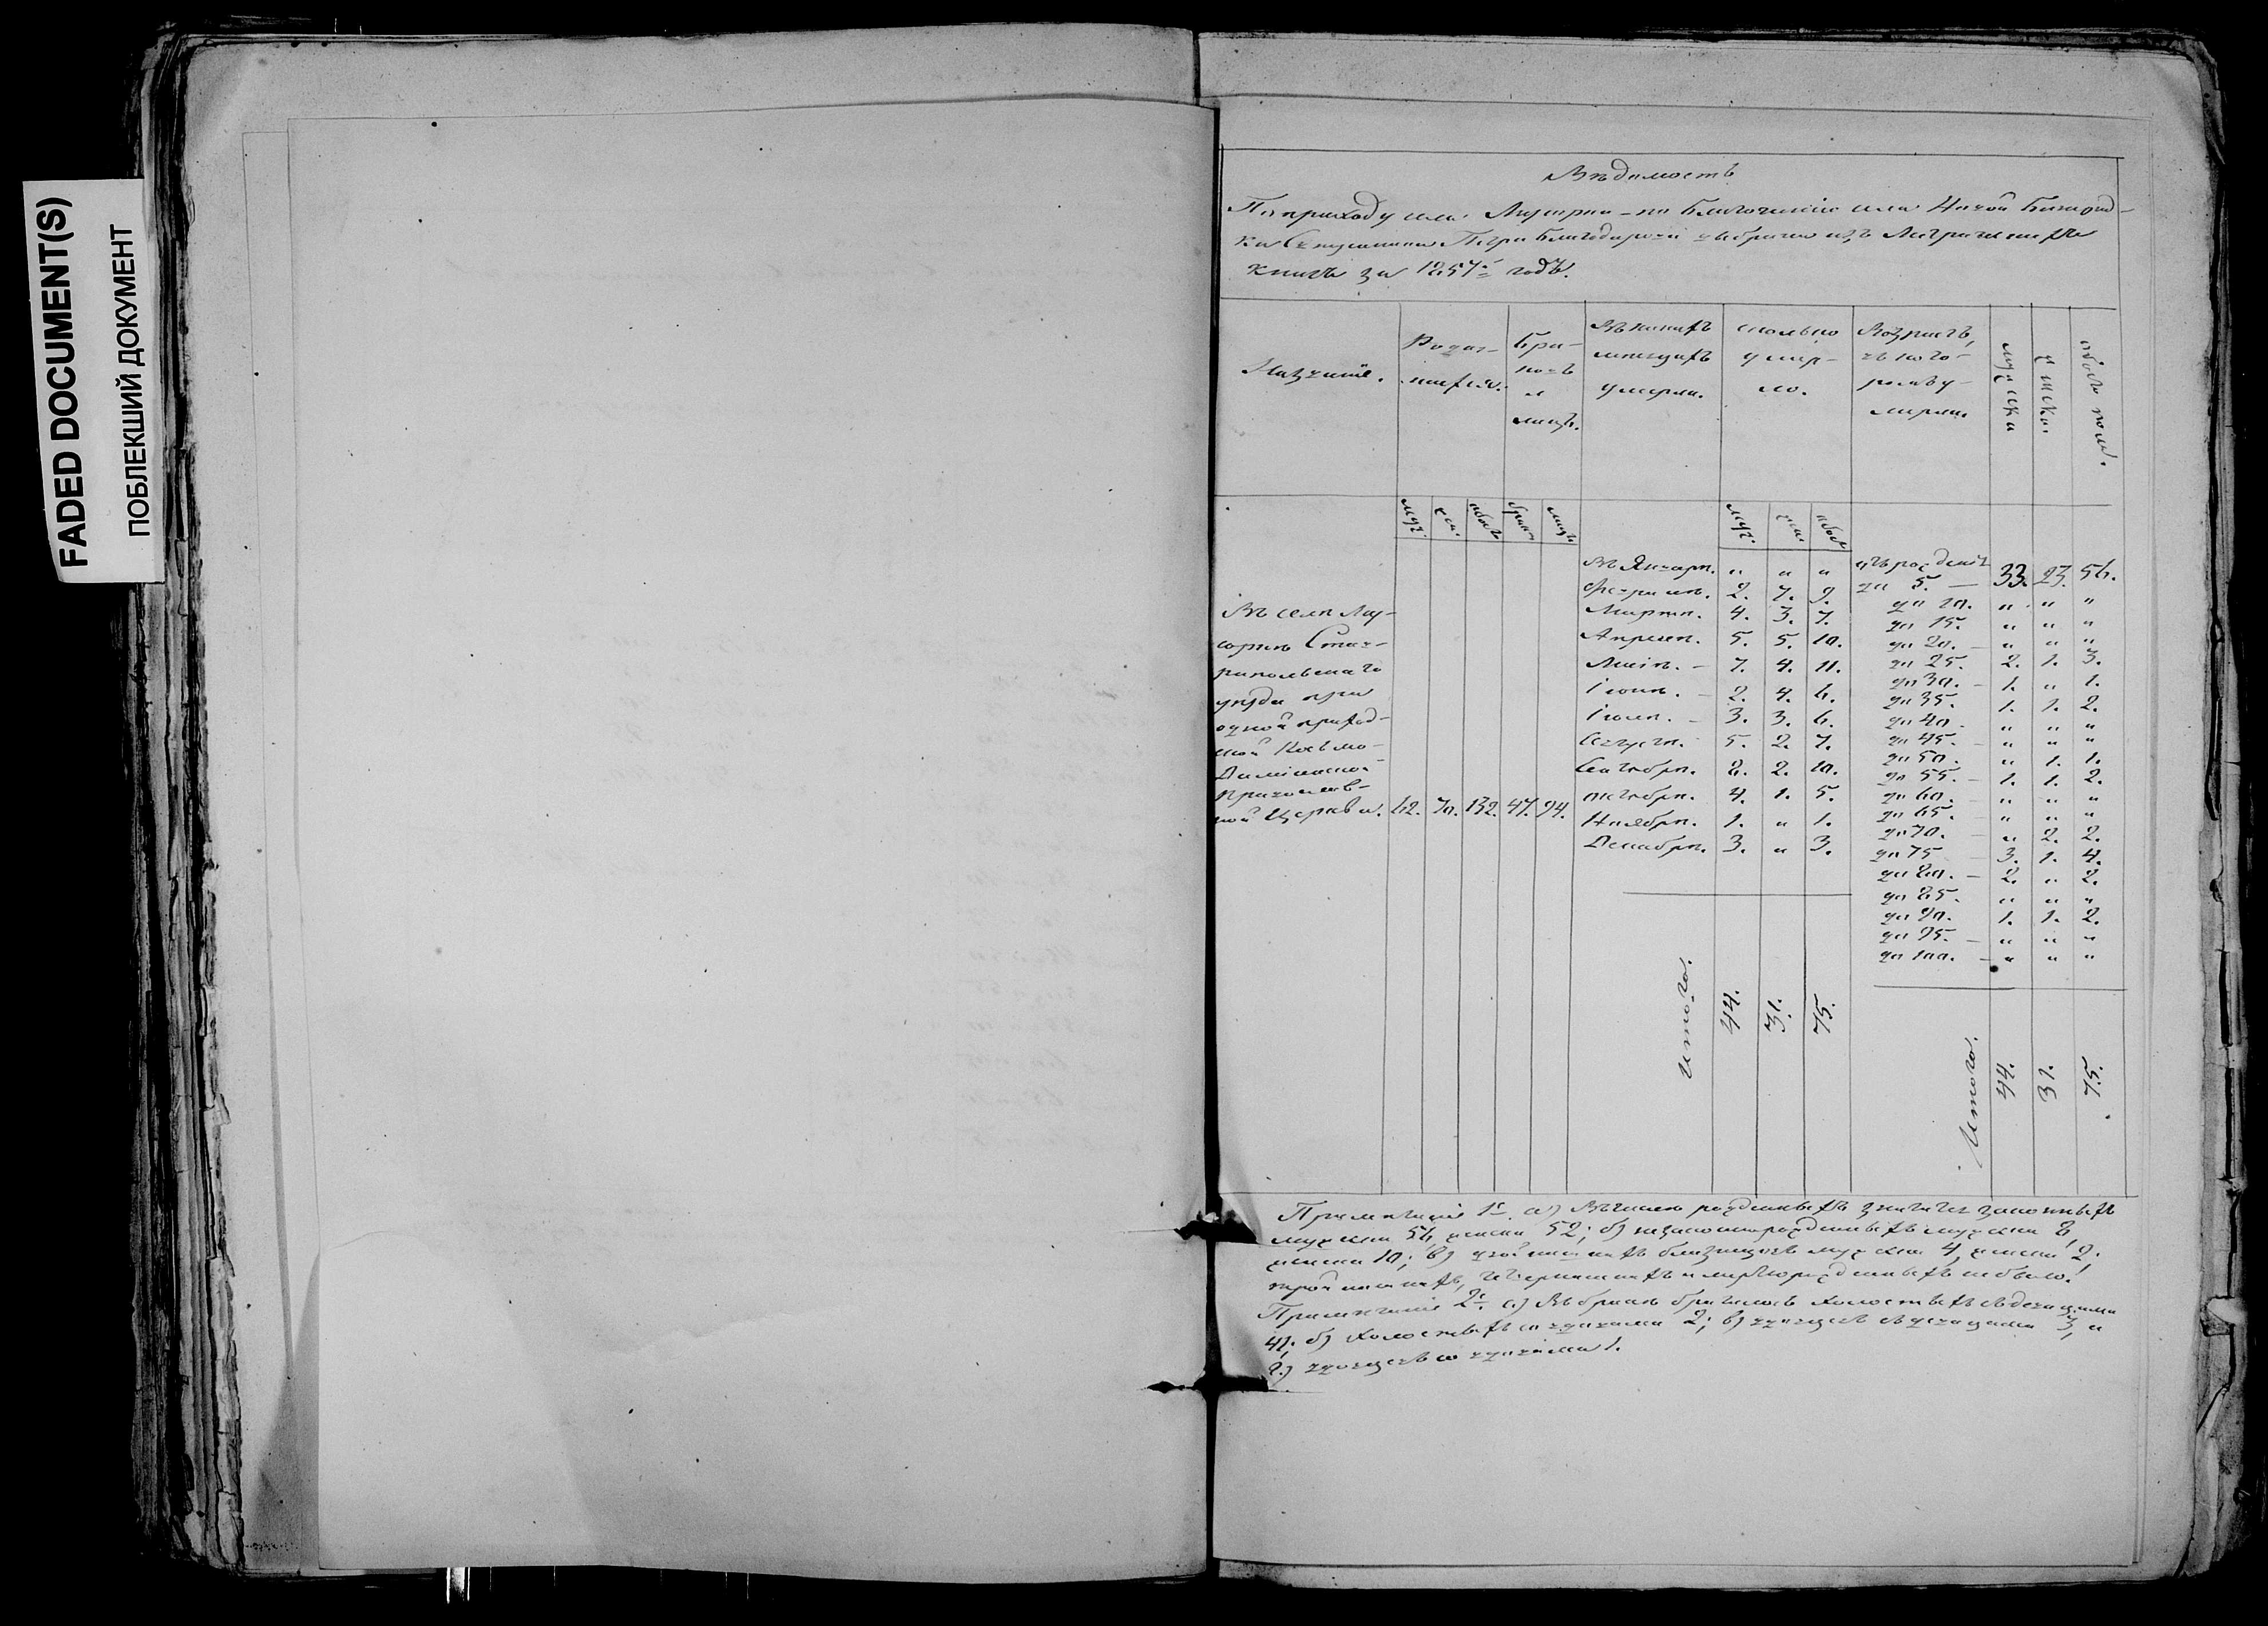 FADED DOCUMENT(S)
ПОБЛЕКШИЙ ДОКУМЕНТ
Вѣдомость
По приходу села Мусорки по благочинію села Новой Бинарад-
ки Священника Петра Благодарова выбрана изъ Метрическихъ
книгъ за 1857й годъ.
Названіе.
Рожд-
Бра-
ковъ
и
лицъ.
Въ какихъ
мѣсяцахъ
умерли.
сколько
умер-
ло.
Возрастъ,
въ кото-
ромъ у-
мерли.
мужска
женска
обоего пола.
муж. жен. обоего брак. лицъ
муж. жен. обоего
Въ селѣ Му-
соркѣ Став-
ропольскаго
уѣзда при
одной приход-
ской Косьмо-
Даміанской
ной Церкви. 62. 70. 132. 47. 94.
Въ Январѣ. „ „ „
Февралѣ. 2. 7. 9.
Мартѣ. 4. 3. 7.
Апрелѣ. 5. 5. 10.
Маѣ. – 7. 4. 11.
Іюнѣ. – 2. 4. 6.
Іюлѣ. – 3. 3. 6.
Августѣ. 5. 2. 7.
Сентябрѣ. 8. 2. 10.
октябрѣ. 4. 1. 5.
Ноябрѣ. 1. „ 1.
Декабрѣ. 3. „ 3.
Итого. 44. 31. 75.
отъ рожденія
до 5. – 33. 23. 56.
до 10. „ „ „
до 15. „ „ „
до 20. – „ „ „
до 25. 2. 1. 3.
до 30. – 1. „ 1.
до 35. 1. 1. 2.
до 40. „ „ „
до 45. – „ „ „
до 50. „ 1. 1.
до 55. – 1. 1. 2.
до 60. – „ „ „
до 65. – „ „ „
до 70. – „ 2. 2.
до 75 – 3. 1. 4.
до 80. – 2. „ 2.
до 85. „ „ „
до 90. 1. 1. 2.
до 95. – „ „ „
до 100. – „ „ „
Итого. 44. 31. 75.
Примѣчаніе 1е. а) Въ числѣ рожденныхъ значится законныхъ
мужска 54, женска 52; б) незаконнорожденныхъ мужска 8,
женска 10; в) двойнишнихъ близнецовъ мужска 4, женска 2.
тройнишнихъ, четвернишнихъ и мертворожденныхъ не было.
Примѣчаніе 2е. а) Въ бракъ холостыхъ съ дѣвицами
41; б) холостыхъ со вдовами 2; в) вдовцевъ съ дѣвицами 3, и
г) вдовцевъ со вдовами 1.